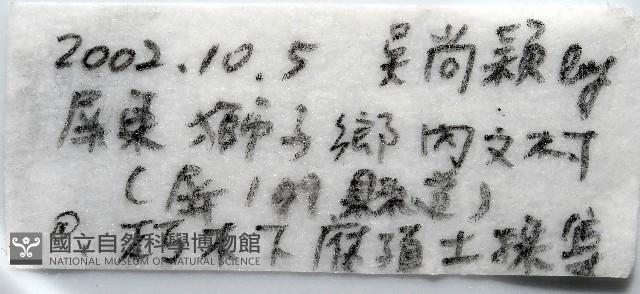 2002.10.5 吳尚穎 leg
屏東獅子鄉內文村
(屏199縣道)
朽木下腐殖土採集
國立自然科學博物館
NATIONAL MUSEUM OF NATURAL SCIENCE